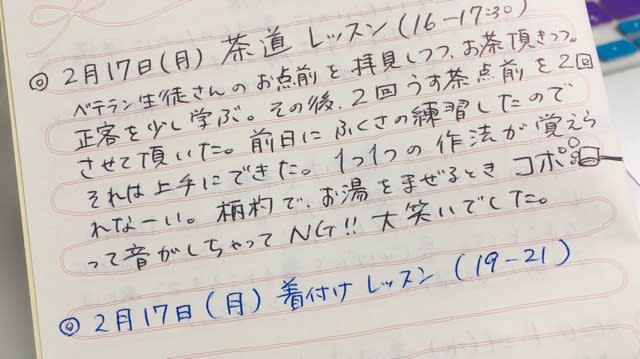 ◎ 2月17日(月) 茶道 レッスン (16-17:30)
ベテラン生徒さんの お点前 を 拝見しつつ、お茶頂きつつ。
正客を少し学ぶ。その後、2回 うす茶点前 を 2回
させて頂いた。前日に ふくさの練習したので
それは上手にできた。1つ1つの 作法が 覚えら
れなーい。柄杓で、お湯をまぜるとき コポ
って音がしちゃって NG!! 大笑いでした。
◎ 2月17日(月) 着付け レッスン (19-21)